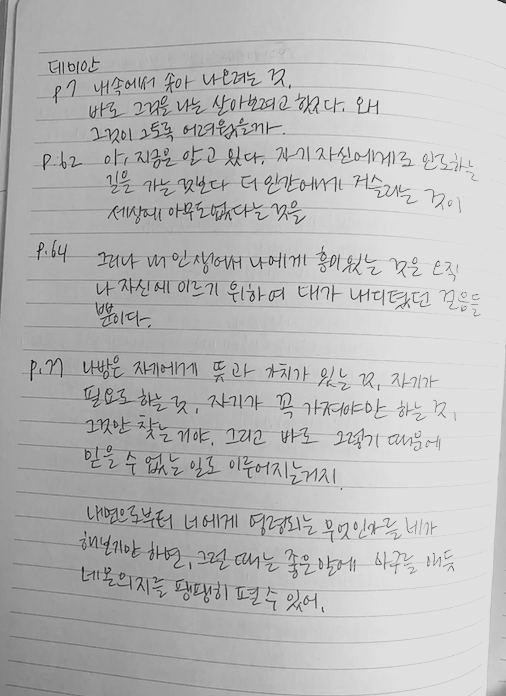 데미안
p7 내속에서 솟아 나오려는 것,
바로 그것을 나는 살아보려고 했다. 왜
그것이 그토록 어려웠을까.
p.62 아, 지금은 안고 있다. 자기 자신에게로 인도하는
길을 가는 것보다 더 인간에게 거슬리는 것이
세상에 아무도없다는 것을
p.64 그러나 내 인생에서 나에게 흥미있는 것은 오직
나 자신에 이르기 위하여 내가 내디뎠던 걸음들
뿐이다.
p.77 나방은 자기에게 뜻과 가치가 있는 것, 자기가
필요로 하는 것, 자기가 꼭 가져야만 하는 것,
그것만 찾는거야. 그리고 바로 그렇기 때문에
믿을 수 없는 일도 이루어지는거지.
내면으로부터 너에게 명령되는 무엇인가를 네가
해보기만 하면, 그럴 때는 좋은 말에 마구를 매듯
네 온의지를 팽팽히 펼 수 있어.